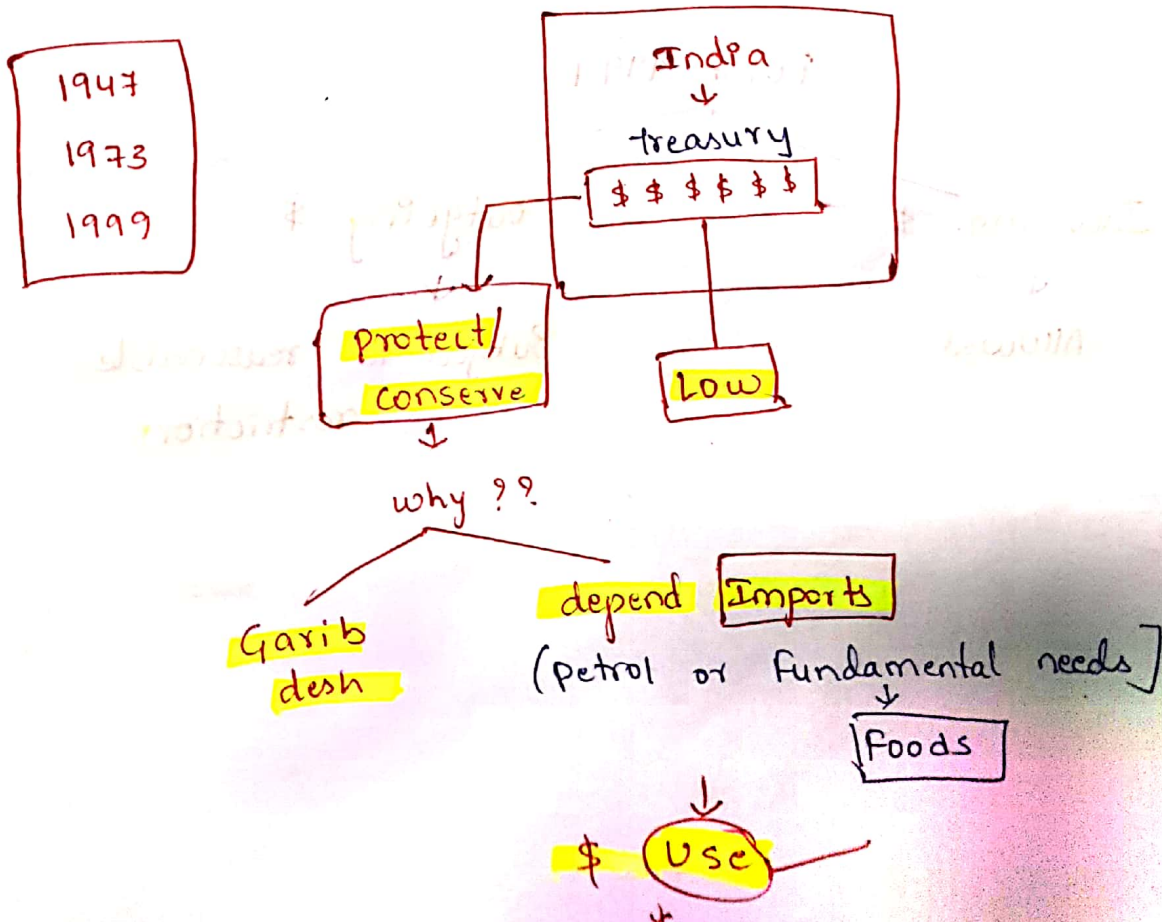 1947
1973
1999
India
↓
treasury
$ $ $ $ $ $
protect/
conserve
Low
↓
why ??
Garib
desh
depend Imports
(petrol or Fundamental needs]
↓
Foods
↓
$ Use